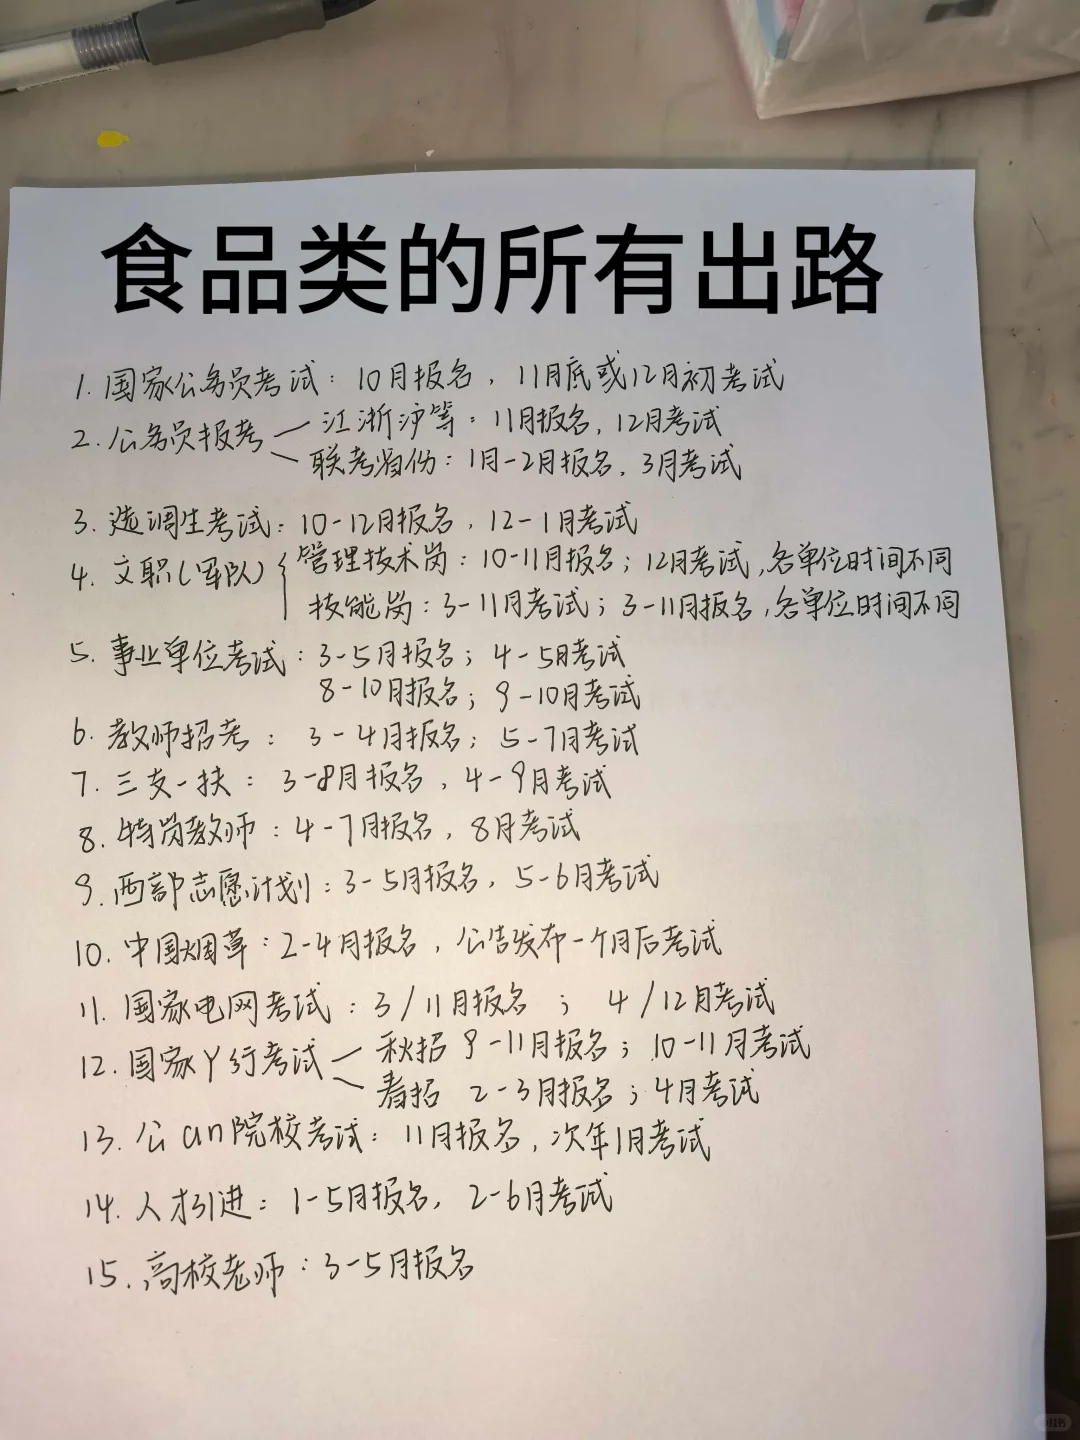 食品类的所有出路
1. 国家公务员考试：10月报名，11月底或12月初考试
2. 公务员报考
江浙沪等：11月报名，12月考试
联考省份：1月-2月报名，3月考试
3. 选调生考试：10-12月报名，12-1月考试
4. 文职(军队)
管理技术岗：10-11月报名；12月考试，各单位时间不同
技能岗：3-11月考试；3-11月报名，各单位时间不同
5. 事业单位考试：3-5月报名；4-5月考试
8-10月报名；9-10月考试
6. 教师招考：3-4月报名；5-7月考试
7. 三支一扶：3-8月报名，4-9月考试
8. 特岗教师：4-7月报名，8月考试
9. 西部志愿计划：3-5月报名，5-6月考试
10. 中国烟草：2-4月报名，公告发布一个月后考试
11. 国家电网考试：3/11月报名；4/12月考试
12. 国家丫行考试
秋招 9-11月报名；10-11月考试
春招 2-3月报名；4月考试
13. 公an院校考试：11月报名，次年1月考试
14. 人才引进：1-5月报名，2-6月考试
15. 高校老师：3-5月报名